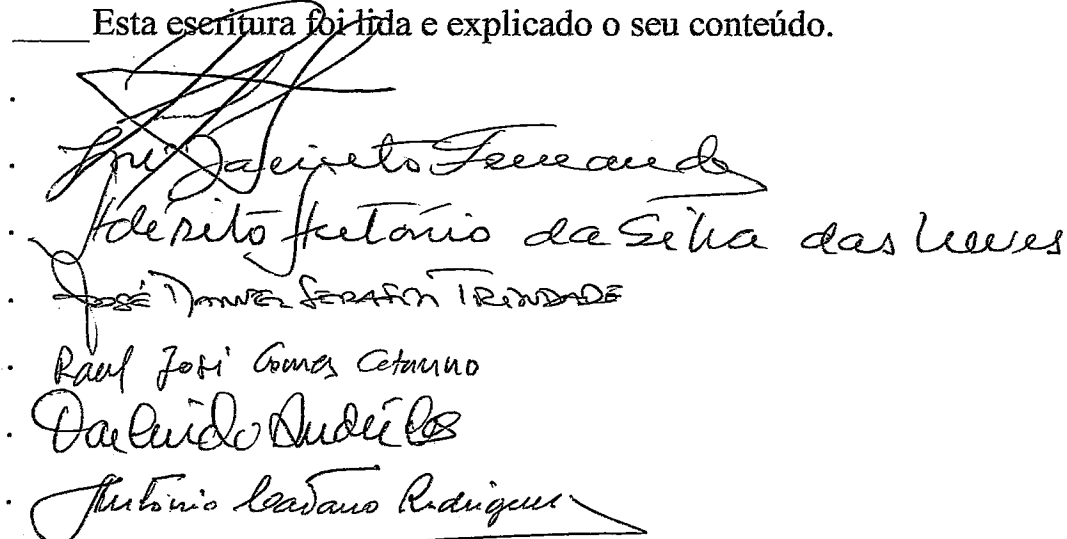 Esta escritura foi lida e explicado o seu conteúdo.
José Jacinto Fernandes
Adérito António da Silva das Neves
José Daniel Serafim Trindade
Raul José Gomes Caetano
António Caetano Rodrigues